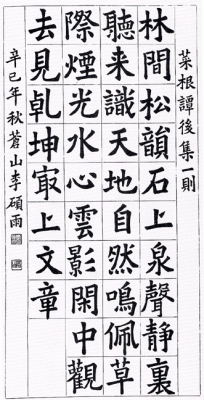 菜根譚後集一則
林間松韻石上泉聲靜裏
聽来識天地自然鳴佩草
際煙光水心雲影閑中觀
去見乹坤㝡上文章
辛巳年秋蒼山李碩雨